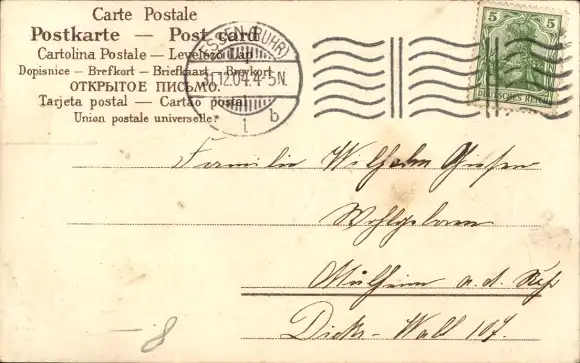 Carte Postale
Postkarte — Post card
Cartolina Postale — Levelező Lap
Dopisnice — Brefkort — Briefkaart — Brevkort
ОТКРЫТОЕ ПИСЬМО.
Tarjeta postal — Cartão postal
Union postale universelle.
ESSEN (RUHR)
31.12.04.4-5N.
1 b
5 5
DEUTSCHES REICH
Familie Wilhelm
Wohlgeboren
Mülheim a. d. Ruhr
Dicks-Wall 107.
8